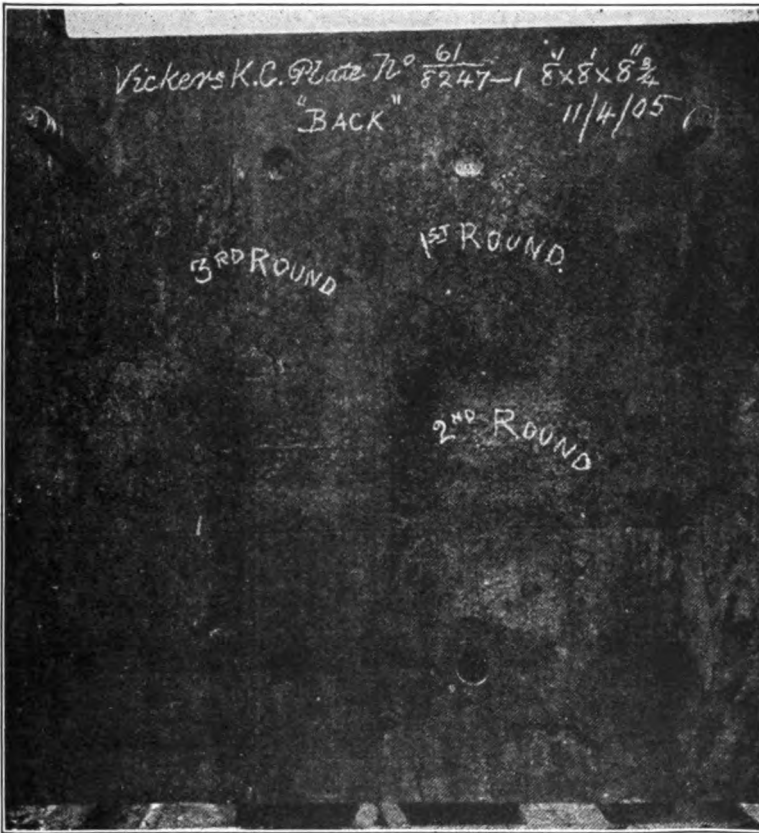 Vickers K.C. Plate No 61/8247-1 8'x8'x8"3/4
"BACK"
11/4/05
1ST ROUND.
3RD ROUND
2ND ROUND